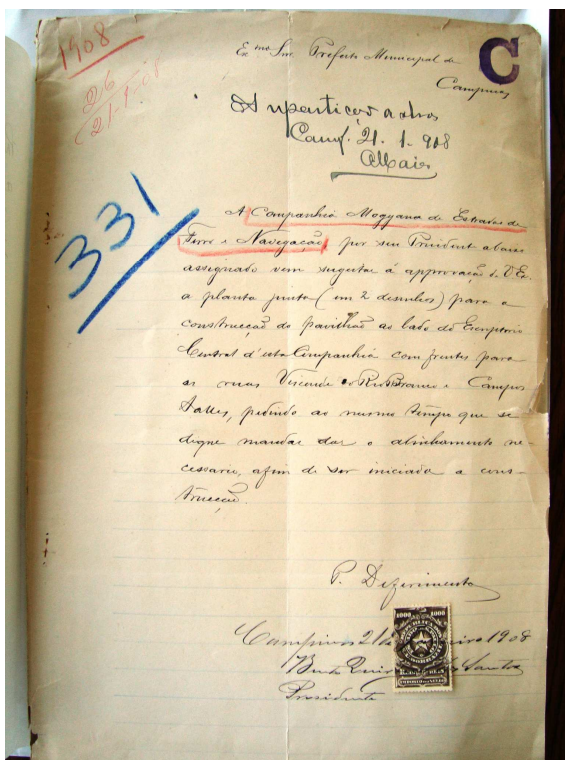 1908
26
21-1-08
C
Ex.mo Snr. Prefeito Municipal de
Campinas
Á repartição d'obras
Camp. 21. 1. 908
331
A Companhia Mogyana de Estradas de
Ferro e Navegação, por seu Presidente abaixo
assignado vem sugeitar á approvação de V. Ex.
a planta junta (em 2 desenhos) para a
construcção do pavilhão ao lado do Escriptorio
Central d'esta Companhia com frentes para
as ruas Visconde do Rio Branco e Campos
Salles, pedindo ao mesmo tempo que se
digne mandar dar o alinhamento ne-
cessario, afim de ser iniciada a cons-
trucção.
P. Deferimento
Campinas 21 de 1908
Bento Santos
Presidente
1000 1000
REPUBLICA